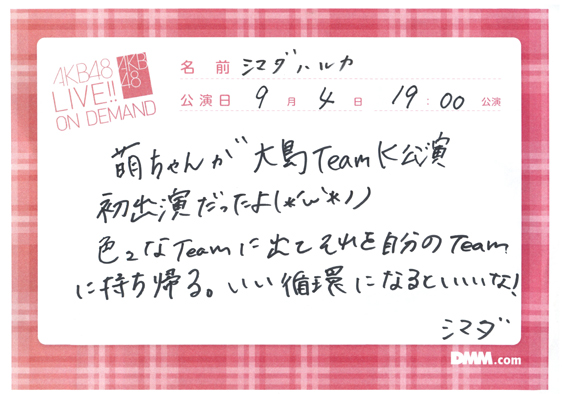 AKB48
LIVE!!
ON DEMAND
AKB
48
名 前 シマダハルカ
公演日 9月 4日 19:00 公演
萌ちゃんが大島TeamK公演
初出演だったよ(*'ω'*ﾉﾉ
色々なTeamに出てそれを自分のTeam
に持ち帰る。いい循環になるといいな!
シマダ
DMM.com